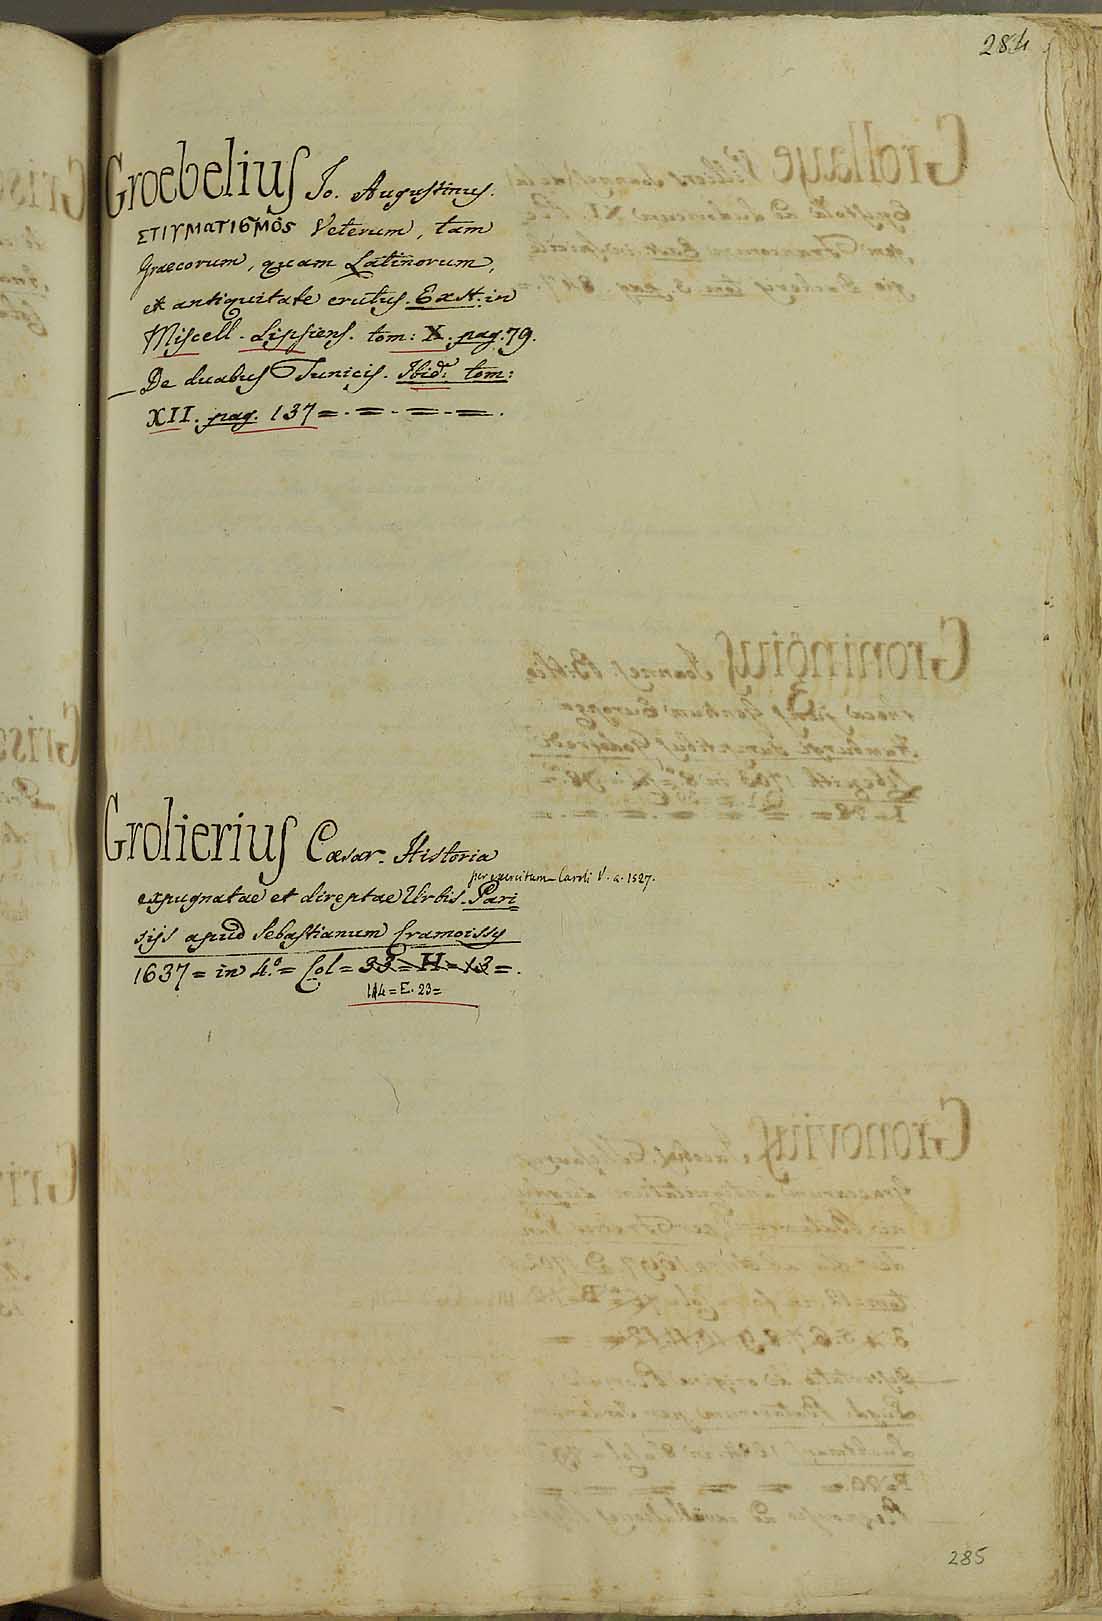 284
Groebelius Jo. Augustinus.
ΣΤΙΓΜΑΤΙΣΜὸς Veterum, tam
Graecorum, quam Latinorum,
ex antiquitate erutus. Exst. in
Miscell. Lipsiens. tom: X. pag. 79.
_ De duabus Tunicis. Ibid. tom:
XII. pag. 137 = . = . = . = .
Grolierius Cæsar. Historia
per exercitum Caroli V. a. 1527.
expugnatae et direptae Urbis. Pari
sijs apud Sebastianum Cramoissy
1637 = in 4.º = Col = 33 = H = 13 = .
114 = E. 23 =
285